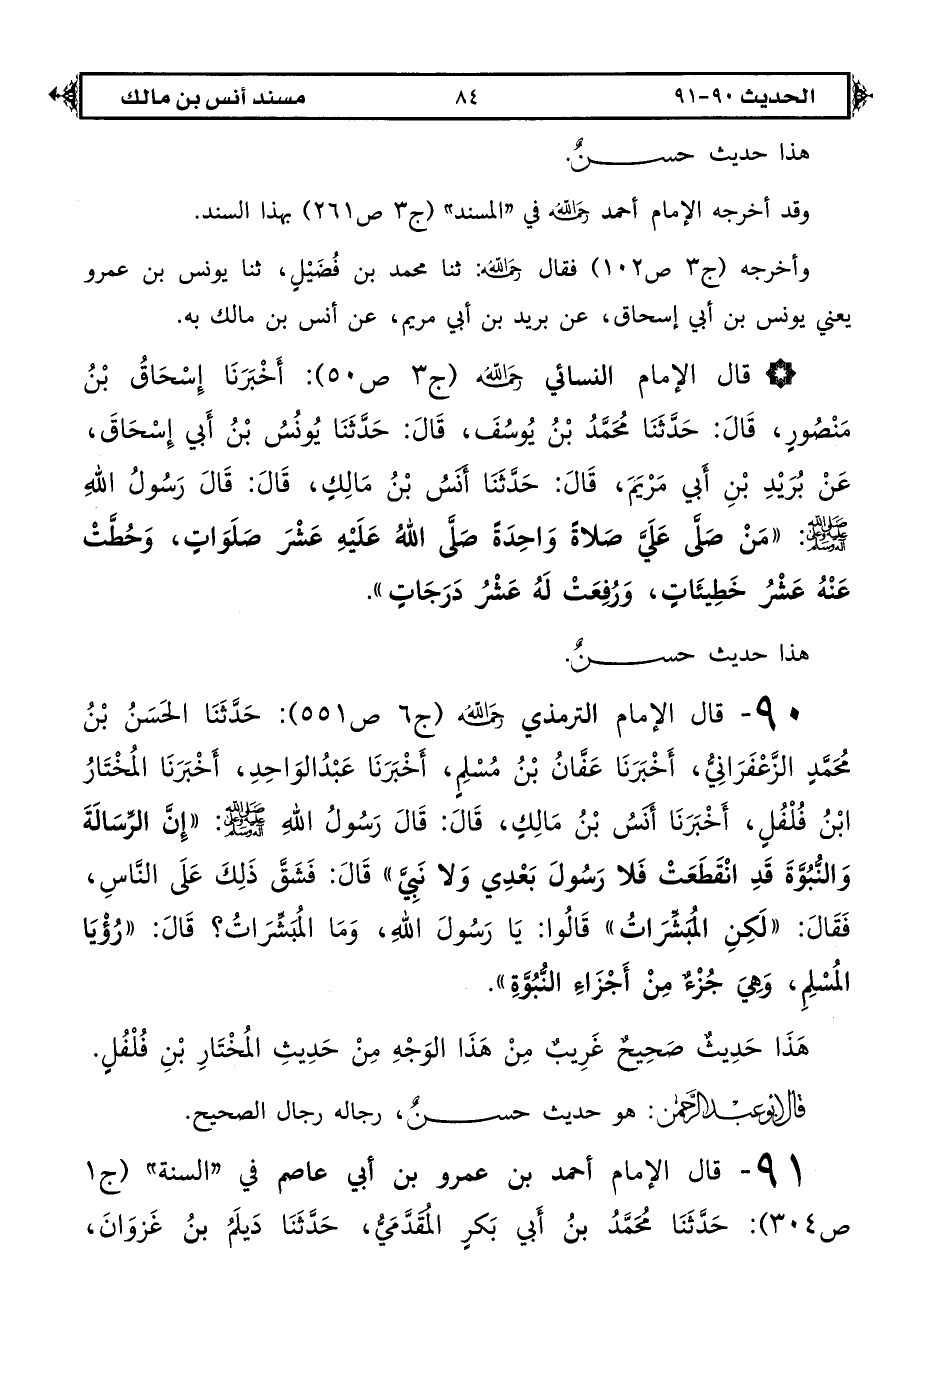 الحديث ٩٠-٩١ ٨٤ مسند أنس بن مالك
هذا حديث حســـــنٌ.
وقد أخرجه الإمام أحمد رحمه الله في «المسند» (ج٣ ص٢٦١) بهذا السند.
وأخرجه (ج٣ ص١٠٢) فقال رحمه الله: ثنا محمد بن فُضَيْلٍ، ثنا يونس بن عمرو
يعني يونس بن أبي إسحاق، عن بريد بن أبي مريم، عن أنس بن مالك به.
۞ قال الإمام النسائي رحمه الله (ج٣ ص٥٠): أَخْبَرَنَا إِسْحَاقُ بْنُ
مَنْصُورٍ، قَالَ: حَدَّثَنَا مُحَمَّدُ بْنُ يُوسُفَ، قَالَ: حَدَّثَنَا يُونُسُ بْنُ أَبي إِسْحَاقَ،
عَنْ بُرَيْدِ بْنِ أَبي مَرْيَمَ، قَالَ: حَدَّثَنَا أَنَسُ بْنُ مَالِكٍ، قَالَ: قَالَ رَسُولُ اللهِ
ﷺ: «مَنْ صَلَّى عَلَيَّ صَلاةً وَاحِدَةً صَلَّى اللهُ عَلَيْهِ عَشْرَ صَلَوَاتٍ، وَحُطَّتْ
عَنْهُ عَشْرُ خَطِيئَاتٍ، وَرُفِعَتْ لَهُ عَشْرُ دَرَجَاتٍ».
هذا حديث حســـــنٌ.
٩٠- قال الإمام الترمذي رحمه الله (ج٦ ص٥٥١): حَدَّثَنَا الحَسَنُ بْنُ
مُحَمَّدٍ الزَّعْفَرَانِيُّ، أَخْبَرَنَا عَفَّانُ بْنُ مُسْلِمٍ، أَخْبَرَنَا عَبْدُالوَاحِدِ، أَخْبَرَنَا المُخْتَارُ
ابْنُ فُلْفُلٍ، أَخْبَرَنَا أَنَسُ بْنُ مَالِكٍ، قَالَ: قَالَ رَسُولُ اللهِ ﷺ: «إِنَّ الرِّسَالَةَ
وَالنُّبُوَّةَ قَدِ انْقَطَعَتْ فَلا رَسُولَ بَعْدِي وَلا نَبِيَّ» قَالَ: فَشَقَّ ذَلِكَ عَلَى النَّاسِ،
فَقَالَ: «لَكِنِ المُبَشِّرَاتُ» قَالُوا: يَا رَسُولَ اللهِ، وَمَا المُبَشِّرَاتُ؟ قَالَ: «رُؤْيَا
المُسْلِمِ، وَهِيَ جُزْءٌ مِنْ أَجْزَاءِ النُّبُوَّةِ».
هَذَا حَدِيثٌ صَحِيحٌ غَرِيبٌ مِنْ هَذَا الوَجْهِ مِنْ حَدِيثِ المُخْتَارِ بْنِ فُلْفُلٍ.
قال أبو عبد الرحمن: هو حديث حســـــنٌ، رجاله رجال الصحيح.
٩١- قال الإمام أحمد بن عمرو بن أبي عاصم في «السنة» (ج١
ص٣٠٤): حَدَّثَنَا مُحَمَّدُ بنُ أَبي بَكرٍ المُقَدَّمَيُّ، حَدَّثَنَا دَيلَمُ بنُ غَزوَانَ،